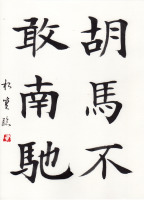 胡馬不
敢南馳